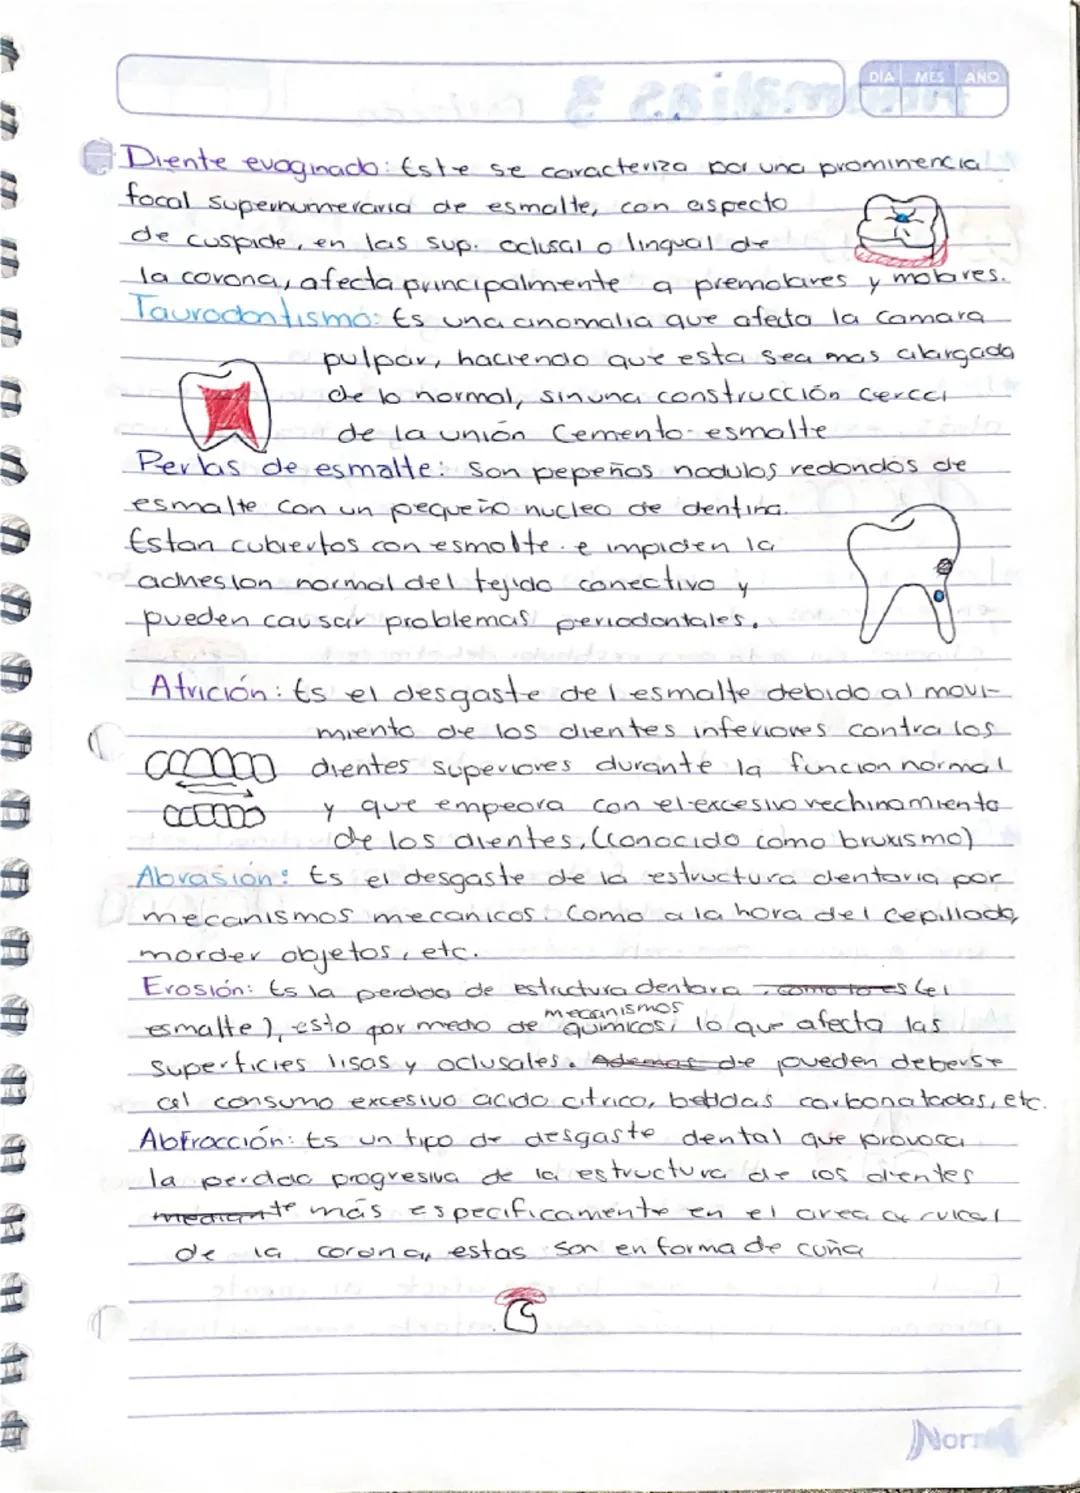 DÍA MES AÑO
Diente evaginado: Este se caracteriza por una prominencia
focal supernumeraria de esmalte, con aspecto
de cuspide, en las sup. oclusal o lingual de
la corona, afecta principalmente a premolares y molares.
Taurodontismo: Es una anomalia que afecta la camara
pulpar, haciendo que esta sea mas alargada
de lo normal, sin una construcción cerca
de la unión Cemento-esmalte
Perlas de esmalte: Son pepeños nodulos redondos de
esmalte con un pequeño nucleo de dentina.
Estan cubiertos con esmalte e impiden la
adhesion normal del tejido conectivo y
pueden causar problemas periodontales.
Atrición: Es el desgaste del esmalte debido al movi-
miento de los dientes inferiores contra los
dientes superiores durante la funcion normal
y que empeora con el excesivo rechinamiento
de los dientes, (conocido como bruxismo)
Abrasión: Es el desgaste de la estructura dentaria por
mecanismos mecanicos. Como a la hora del cepillado,
morder objetos, etc.
Erosión: Es la perdida de estructura dentaria como lo es (el
mecanismos
esmalte), esto por medio de quimicos, lo que afecta las
superficies lisas y oclusales. Ademas de pueden deberse
al consumo excesivo acido citrico, bebidas carbonatadas, etc.
Abfracción: Es un tipo de desgaste dental que provoca
la perdida progresiva de la estructura de los dientes
mediante más especificamente en el area cervical
de la corona, estas son en forma de cuña
Norma